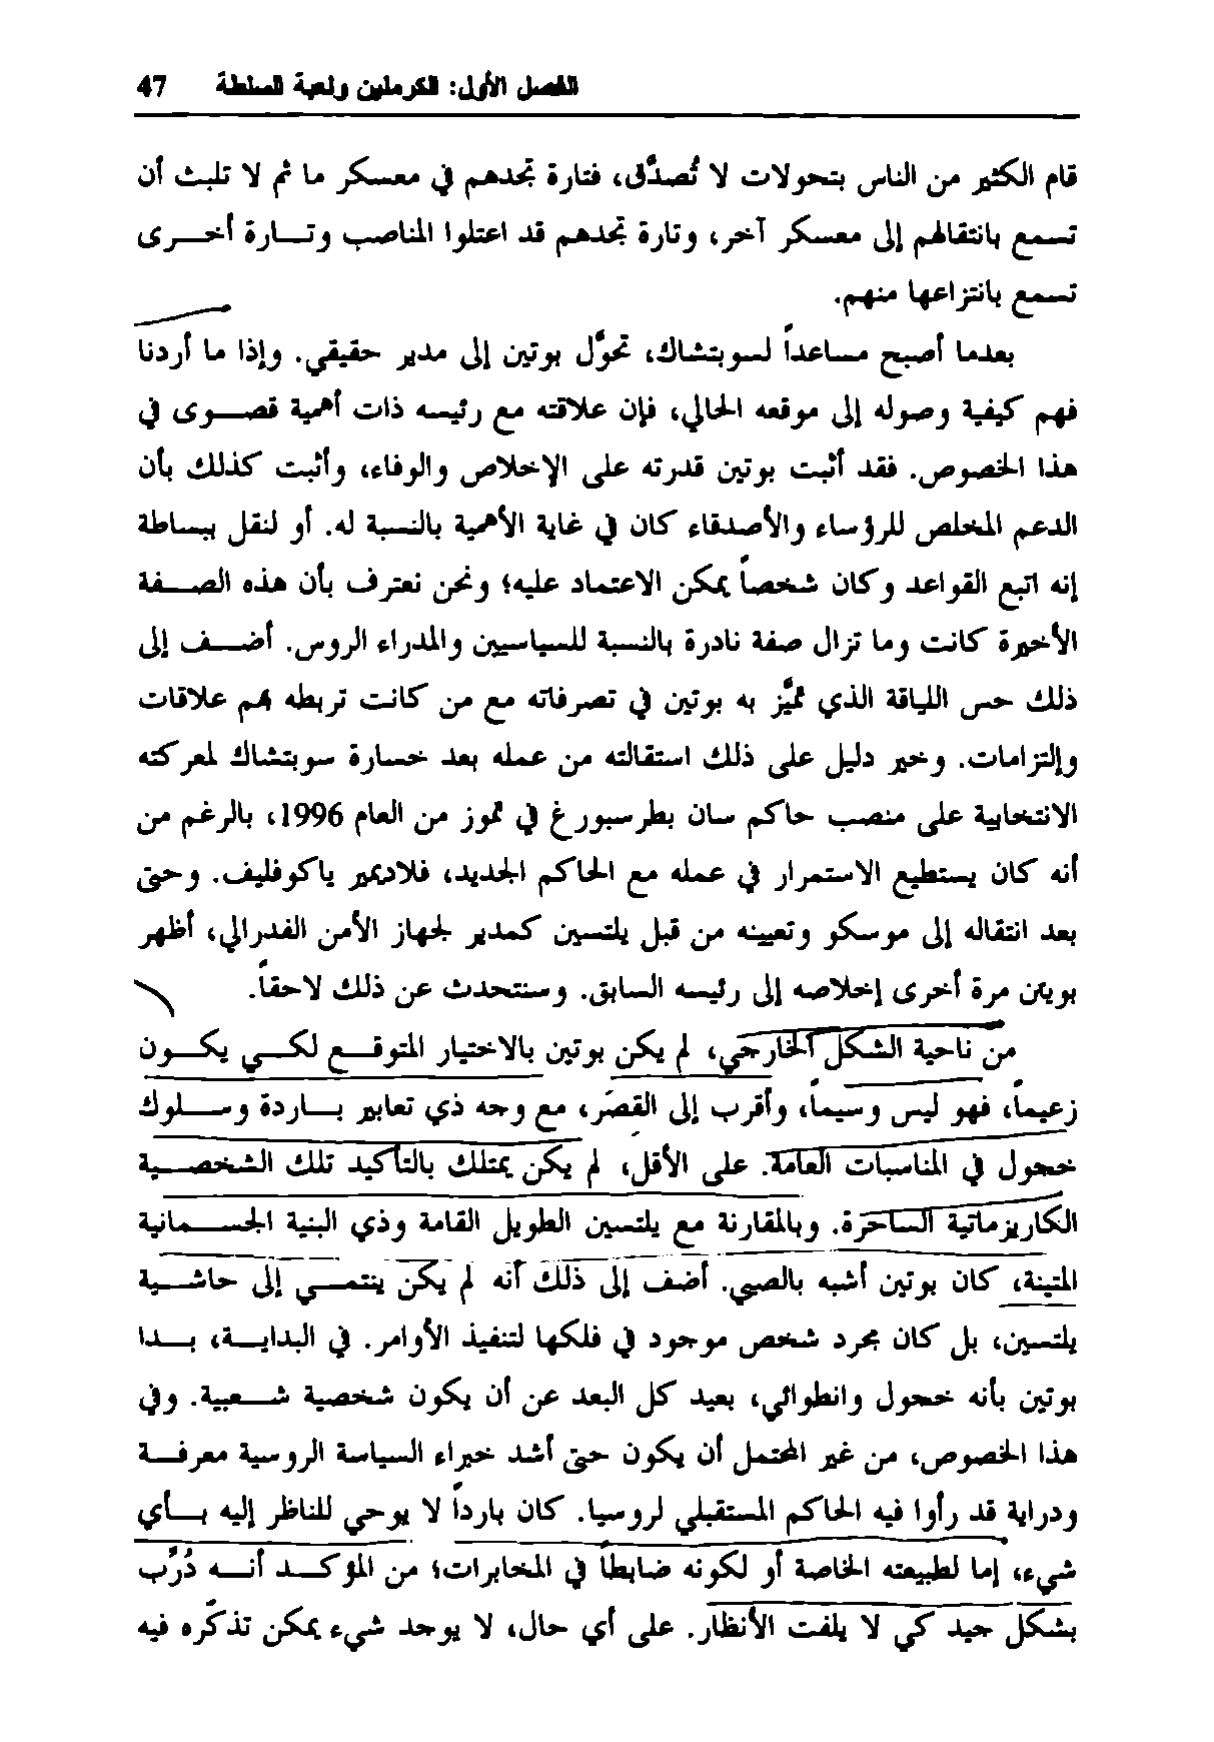 الفصل الأول: الكرملين ولعبة السلطة 47
قام الكثير من الناس بتحولات لا تُصدَّق، فتارة تجدهم في معسكر ما ثم لا تلبث أن
تسمع بانتقالهم إلى معسكر آخر، وتارة تجدهم قد اعتلوا المناصب وتارة أخرى
تسمع بانتزاعها منهم.
بعدما أصبح مساعداً لسوبتشاك، تحوَّل بوتين إلى مدير حقيقي. وإذا ما أردنا
فهم كيفية وصوله إلى موقعه الحالي، فإن علاقته مع رئيسه ذات أهمية قصوى في
هذا الخصوص. فقد أثبت بوتين قدرته على الإخلاص والوفاء، وأثبت كذلك بأن
الدعم المخلص للرؤساء والأصدقاء كان في غاية الأهمية بالنسبة له. أو لنقل ببساطة
إنه اتبع القواعد وكان شخصاً يمكن الاعتماد عليه؛ ونحن نعترف بأن هذه الصفة
الأخيرة كانت وما تزال صفة نادرة بالنسبة للسياسيين والمدراء الروس. أضف إلى
ذلك حس اللياقة الذي تميَّز به بوتين في تصرفاته مع من كانت تربطه بهم علاقات
وإلتزامات. وخير دليل على ذلك استقالته من عمله بعد خسارة سوبتشاك لمعركته
الانتخابية على منصب حاكم سان بطرسبورغ في تموز من العام 1996، بالرغم من
أنه كان يستطيع الاستمرار في عمله مع الحاكم الجديد، فلاديمير ياكوفليف. وحتى
بعد انتقاله إلى موسكو وتعيينه من قبل يلتسين كمدير لجهاز الأمن الفدرالي، أظهر
بويتن مرة أخرى إخلاصه إلى رئيسه السابق. وسنتحدث عن ذلك لاحقاً.
من ناحية الشكل الخارجي، لم يكن بوتين بالاختيار المتوقع لكي يكون
زعيماً، فهو ليس وسيماً، وأقرب إلى القصَر، مع وجه ذي تعابير باردة وسلوك
خجول في المناسبات العامة. على الأقل، لم يكن يمتلك بالتأكيد تلك الشخصية
الكاريزماتية الساحرة. وبالمقارنة مع يلتسين الطويل القامة وذي البنية الجسمانية
المتينة، كان بوتين أشبه بالصبي. أضف إلى ذلك أنه لم يكن ينتمي إلى حاشية
يلتسين، بل كان مجرد شخص موجود في فلكها لتنفيذ الأوامر. في البداية، بدا
بوتين بأنه خجول وانطوائي، بعيد كل البعد عن أن يكون شخصية شعبية. وفي
هذا الخصوص، من غير المحتمل أن يكون حتى أشد خبراء السياسة الروسية معرفة
ودراية قد رأوا فيه الحاكم المستقبلي لروسيا. كان بارداً لا يوحي للناظر إليه بأي
شيء، إما لطبيعته الخاصة أو لكونه ضابطاً في المخابرات؛ من المؤكد أنه دُرِّب
بشكل جيد كي لا يلفت الأنظار. على أي حال، لا يوجد شيء يمكن تذكّره فيه